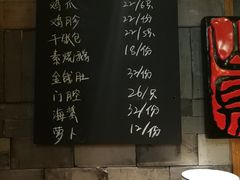 鸡爪 22/份
鸡胗 22/份
千张包 22/份
素烧鹅 18/份
金钱肚 32/份
门腔 26/只
海蜇 32/份
萝卜 12/份